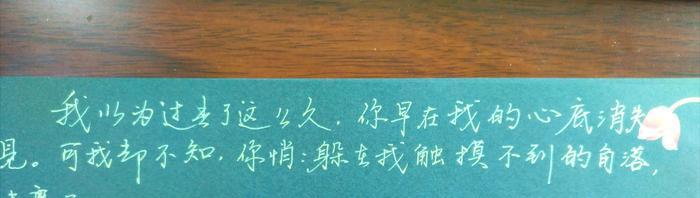 我以为过去了这么久，你早在我的心底消失
见。可我却不知，你悄:躲在我触摸不到的角落，